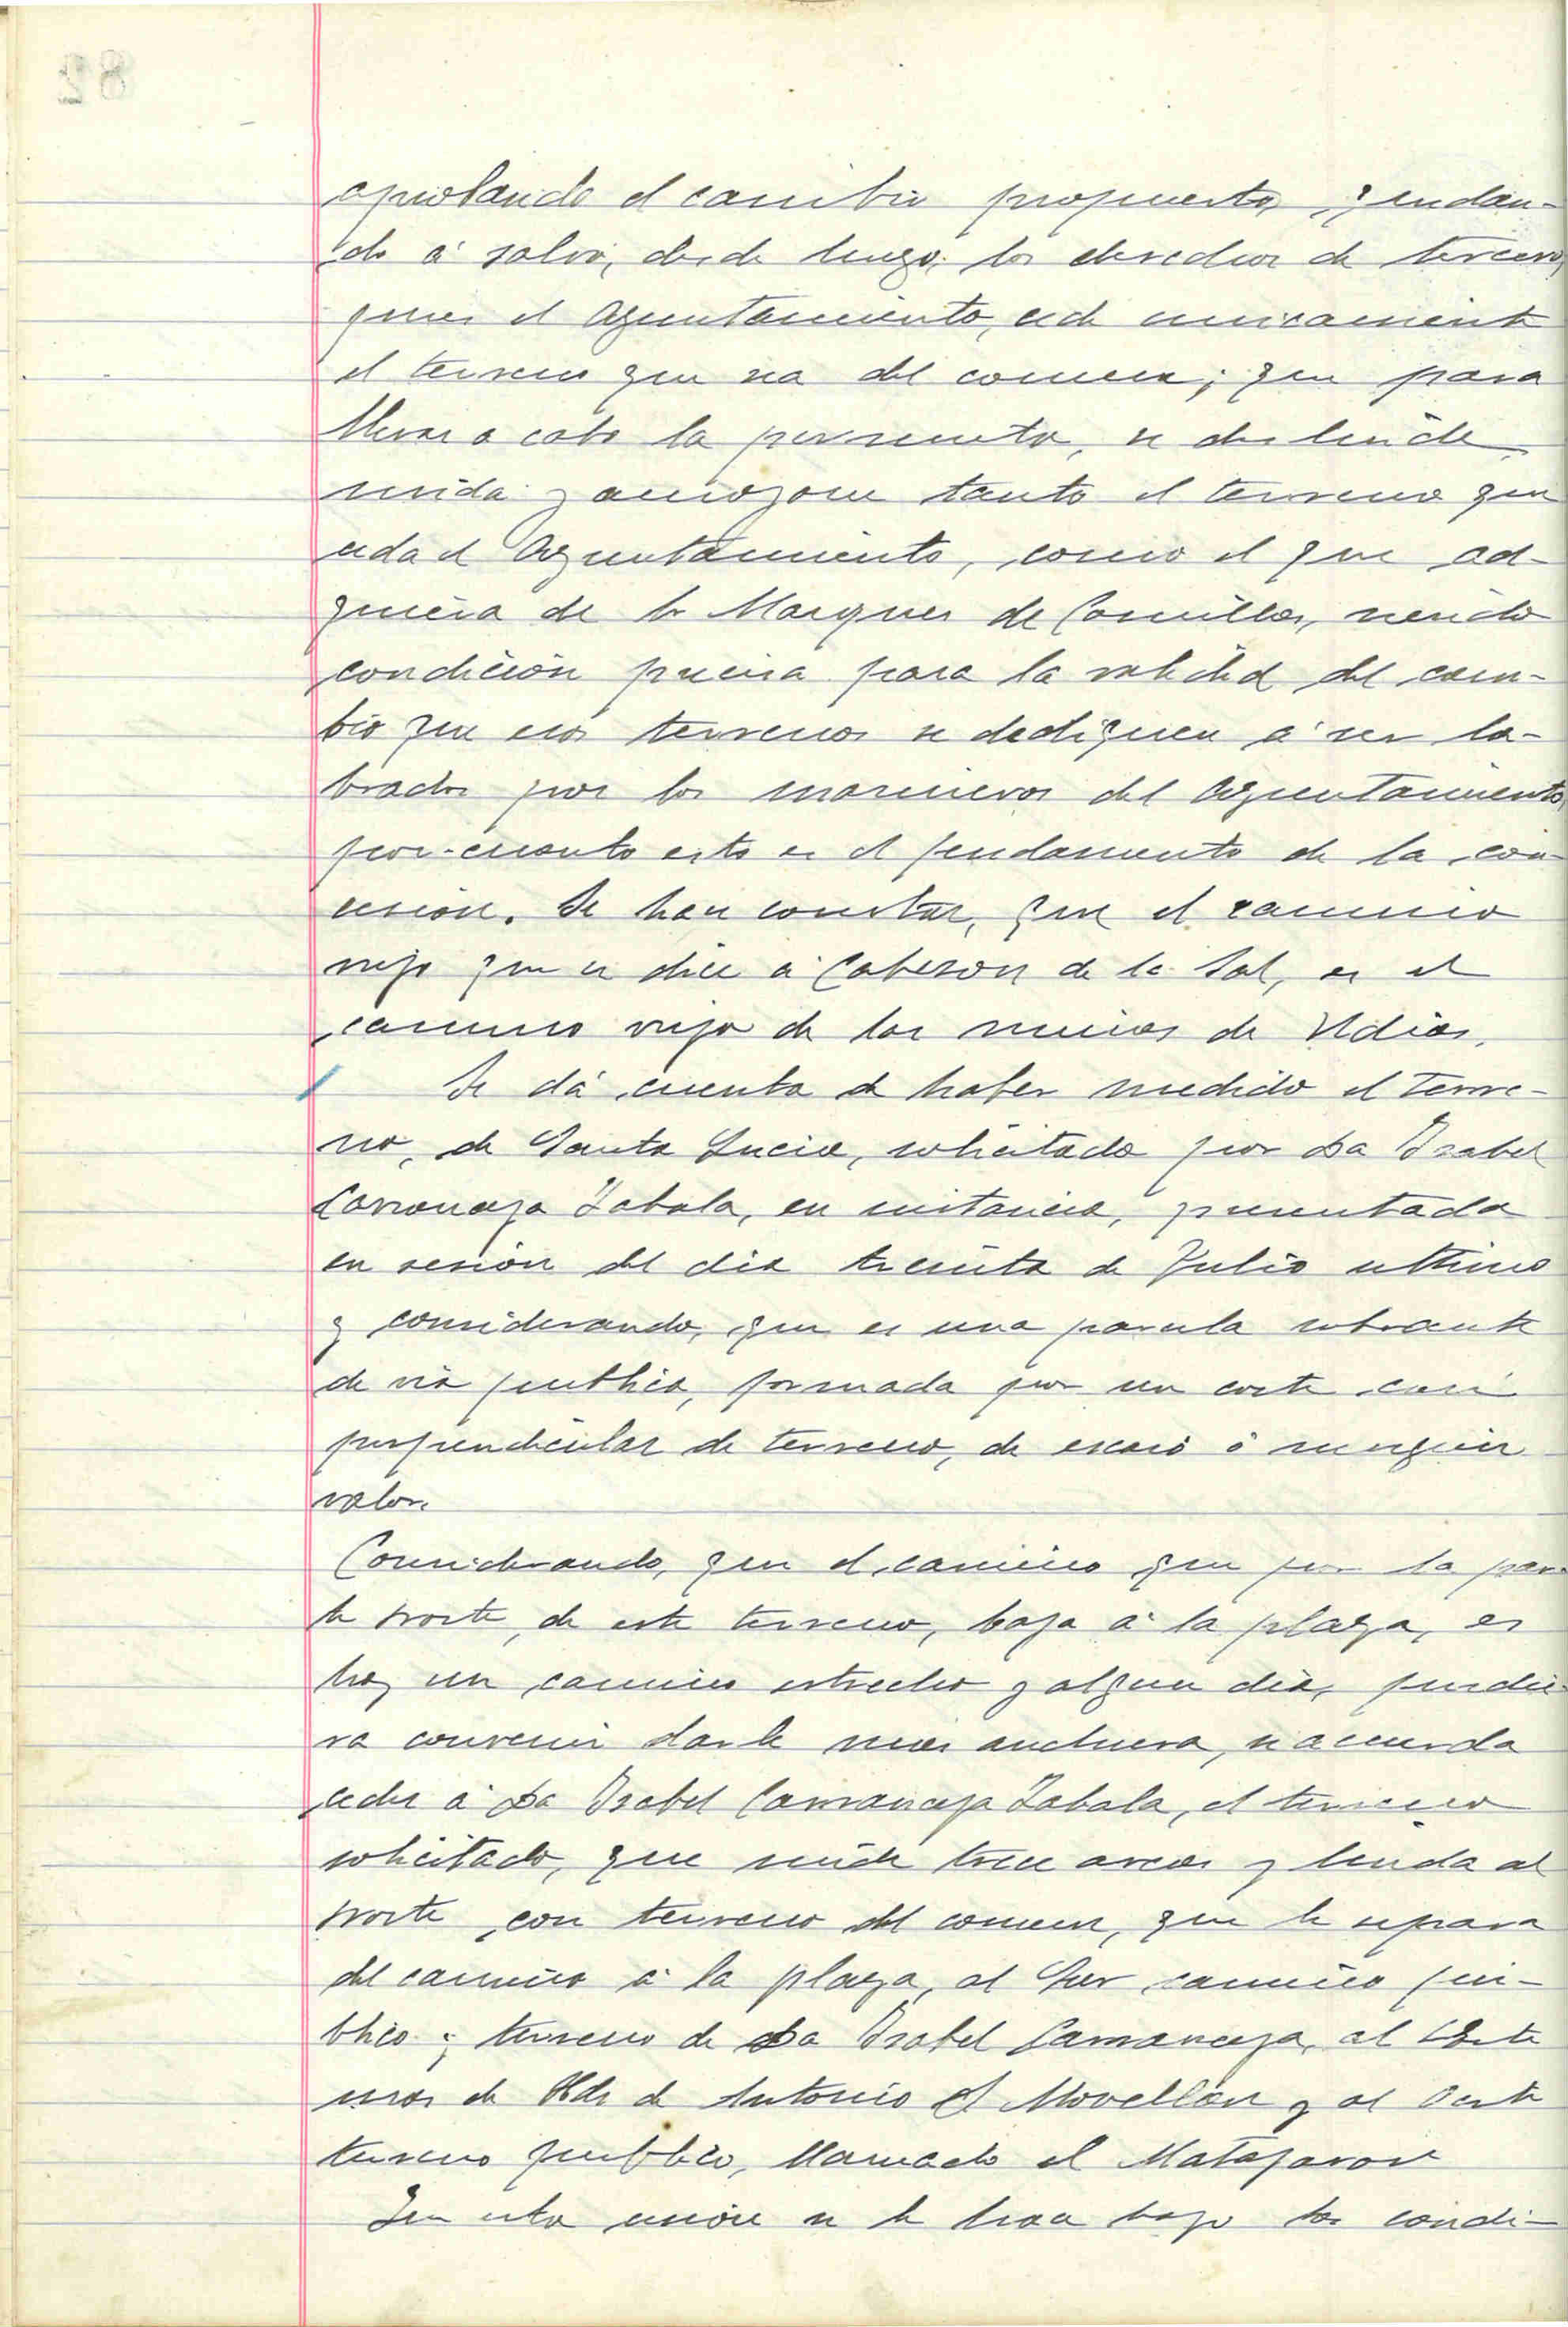 aprobando el cambio propuesto, quedan-
do á salvo, desde luego, los derechos de tercero,
pues el Ayuntamiento, cede unicamente
el terreno que sea del comun; que para
llevar a cabo la permuta, se deslinde
mida y amojone tanto el terreno que
ceda el Ayuntamiento, como el que ad-
quiera de los Marques de Comillas, siendo
condición precisa para la valided del cam-
bio que esos terrenos se dediquen á ser la-
brados por los marineros del Ayuntamiento,
por-cuanto esto es el fundamento de la con-
cesión. Se hace constar, que el camino
viejo que se dice á Cabezon de la Sal, es el
camino viejo de las minas de Udias.
Se dá cuenta de haber medido el terre-
no, de Santa Lucia, solicitado por Da Isabel
Zabala, en instancia, presentada
en sesión del dia treinta de Julio ultimo
y considerando, que es una parcela sobrante
de via publica, formada por un corte casi
perpendicular de terreno, de escaso ó ningún
valor.
Considerando, que el camino que por la par-
te norte, de este terreno, baja á la playa, es
hoy un camino estrecho y algun dia, pudie-
ra convenir darle mas anchura, se acuerda
ceder á Da Isabel Zabala, el terreno
solicitado, que mide trece areas y linda al
norte con terreno del comun, que le separa
del camino á la playa, al Sur camino pú-
blico y terreno de Da Isabel al Este
mas de Hdos de Antonio Movellán y al Oeste
terreno publico, llamado el
Que esta cesión se le hace bajo las condi-
82